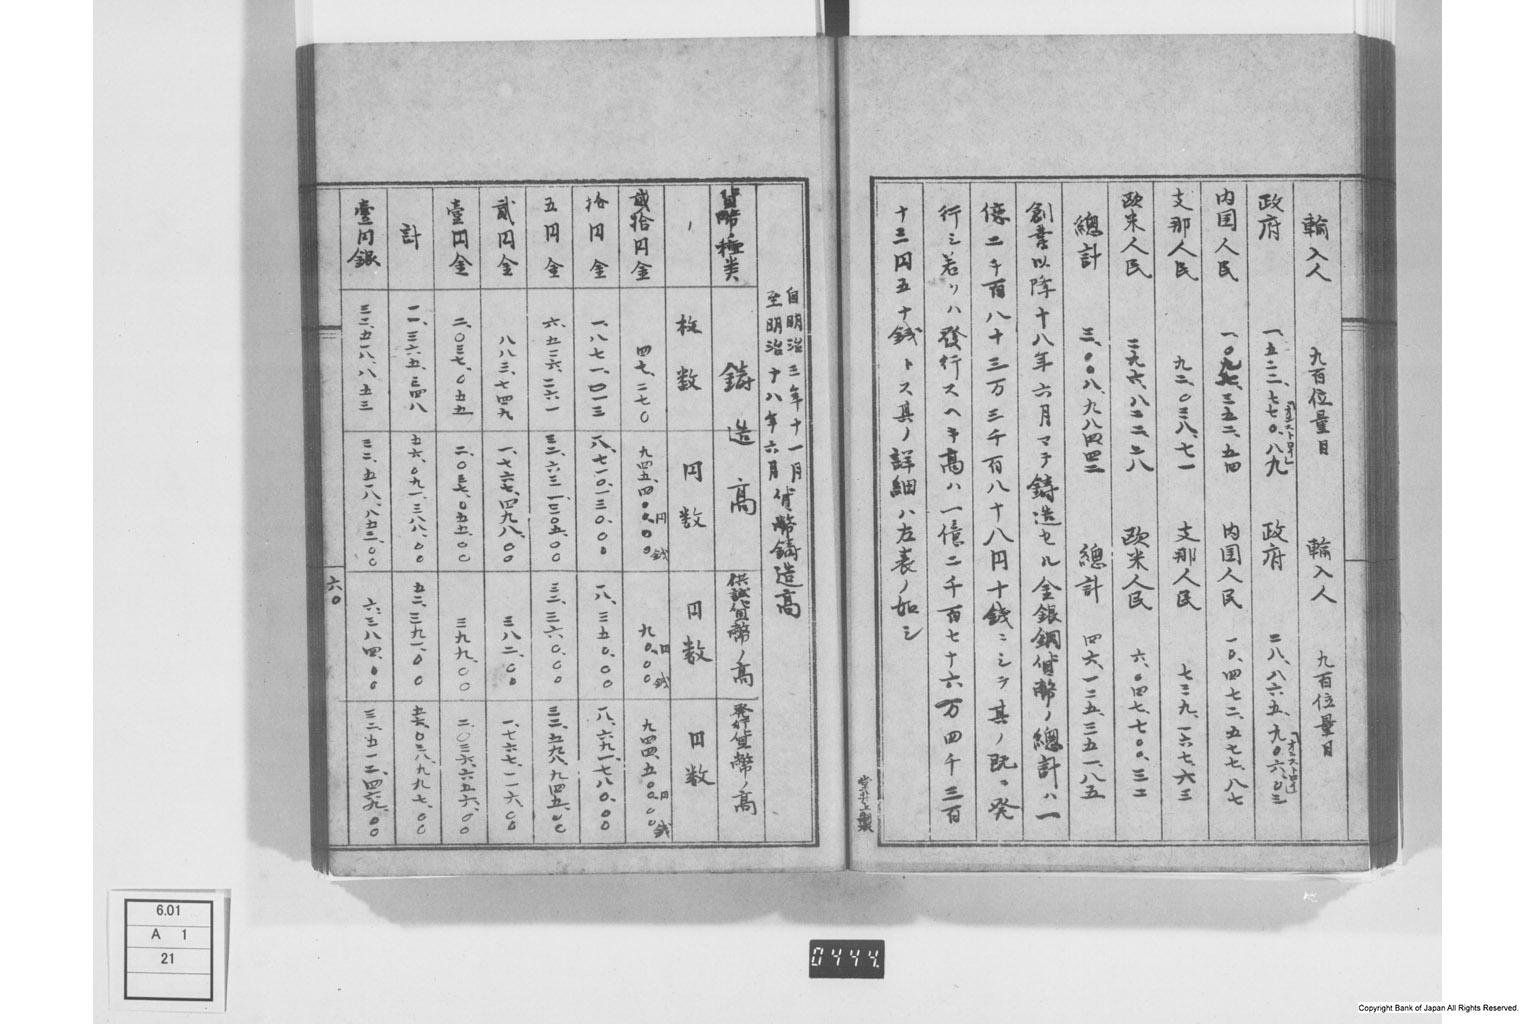 輸入人 九百位量目 輸入人 九百位量目
政府 一、五二二、七七〇、八九 政府 二八、八六五、九〇六、〇三
内国人民 内国人民 一〇、四七二、五七七、八七
支那人民 九二、〇三八、七一 支那人民 七三九、一六七、六三
欧米人民 欧米人民 六、〇四七、七〇〇、三二
總計 三、〇〇八、九八四、四二 總計 四六、一二五、三五一、八五
創業以降十八年六月マテ鋳造セル金銀銅貨幣ノ總計ハ一
億二千百八十三万三千百八十八円十銭ニシテ其ノ既ニ発
行シ若クハ發行スヘキ高ハ一億二千百七十六万四千三百
十三円五十銭トス其ノ詳細ハ左表ノ如シ
堂井上製
自明治三年十一月
至明治十八年六月 貨幣鋳造高
貨幣種類 鋳造高 供試貨幣ノ高 発行貨幣ノ高
枚数 円数 円数 円数
貳拾円金 四七、二七〇 九四五、四〇〇、〇〇 円 銭 九〇〇、〇〇 円 銭 九四四、五〇〇、〇〇 円 銭
拾円金 一、八七一、〇一三 一八、七一〇、一三〇、〇〇 一八、三五〇、〇〇 一八、六九一、七八〇、〇〇
五円金 六、五二六、二六一 三二、六三一、三〇五、〇〇 三二、三六〇、〇〇 三二、五九八、九四五、〇〇
貳円金 八八三、七四九 一、七六七、四九八、〇〇 三八二、〇〇 一、七六七、一一六、〇〇
壹円金 二、〇三七、〇五五 二、〇三七、〇五五、〇〇 三九九、〇〇 二、〇三六、六五六、〇〇
計 一一、三六五、三四八 五六、〇九一、三八八、〇〇 五二、三九一、〇〇 五六、〇三八、九九七、〇〇
壹円銀 三二、五一八、八五三 三二、五一八、八五三、〇〇 六、三八四、〇〇 三二、五一二、四六九、〇〇
六〇
6.01
A 1
21
0444.
Copyright Bank of Japan All Rights Reserved.